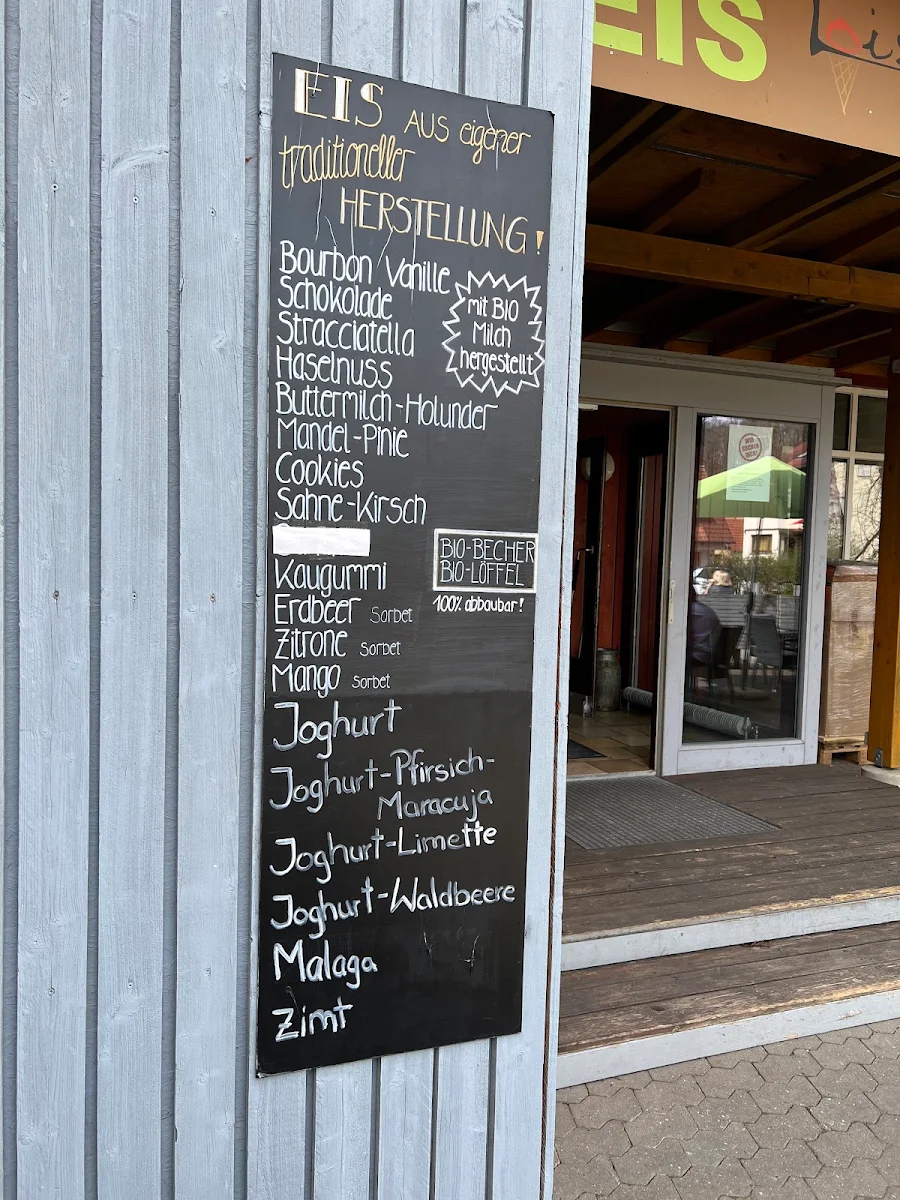 EIS AUS eigener
traditioneller
HERSTELLUNG!
Bourbon Vanille
Schokolade
Stracciatella
Haselnuss
Buttermilch-Holunder
Mandel-Pinie
Cookies
Sahne-Kirsch
Kaugummi
Erdbeer Sorbet
Zitrone Sorbet
Mango Sorbet
Joghurt
Joghurt-Pfirsich-
Maracuja
Joghurt-Limette
Joghurt-Waldbeere
Malaga
Zimt
mit BIO
Milch
hergestellt
BIO-BECHER
BIO-LÖFFEL
100% abbaubar!
EIS